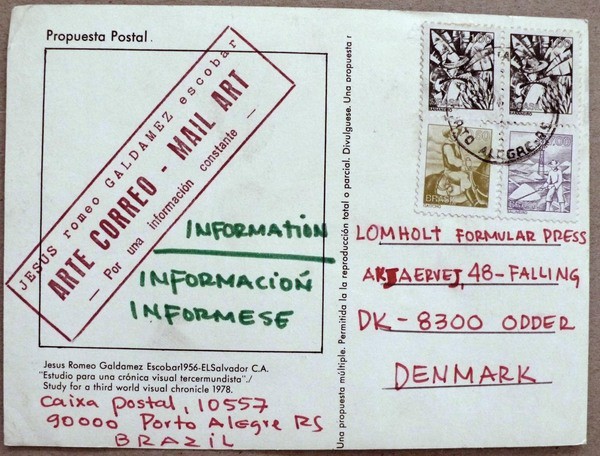 Propuesta Postal.
JESUS romeo GALDAMEZ escobar
ARTE CORREO - MAIL ART
— Por una información constante —
INFORMATION
INFORMACIÓN
INFORMESE
Jesus Romeo Galdamez Escobar1956-ELSalvador C.A.
"Estudio para una crónica visual tercermundista"./
Study for a third world visual chronicle 1978.
Caixa postal, 10557
90000 Porto Alegre RS
BRAZIL
Una propuesta múltiple. Permitida la la reproducción total o parcial. Divulguese. Una propuesta r
BRASIL
PORTO ALEGRE-RS
LOMHOLT FORMULAR PRESS
48-FALLING
DK-8300 ODDER
DENMARK